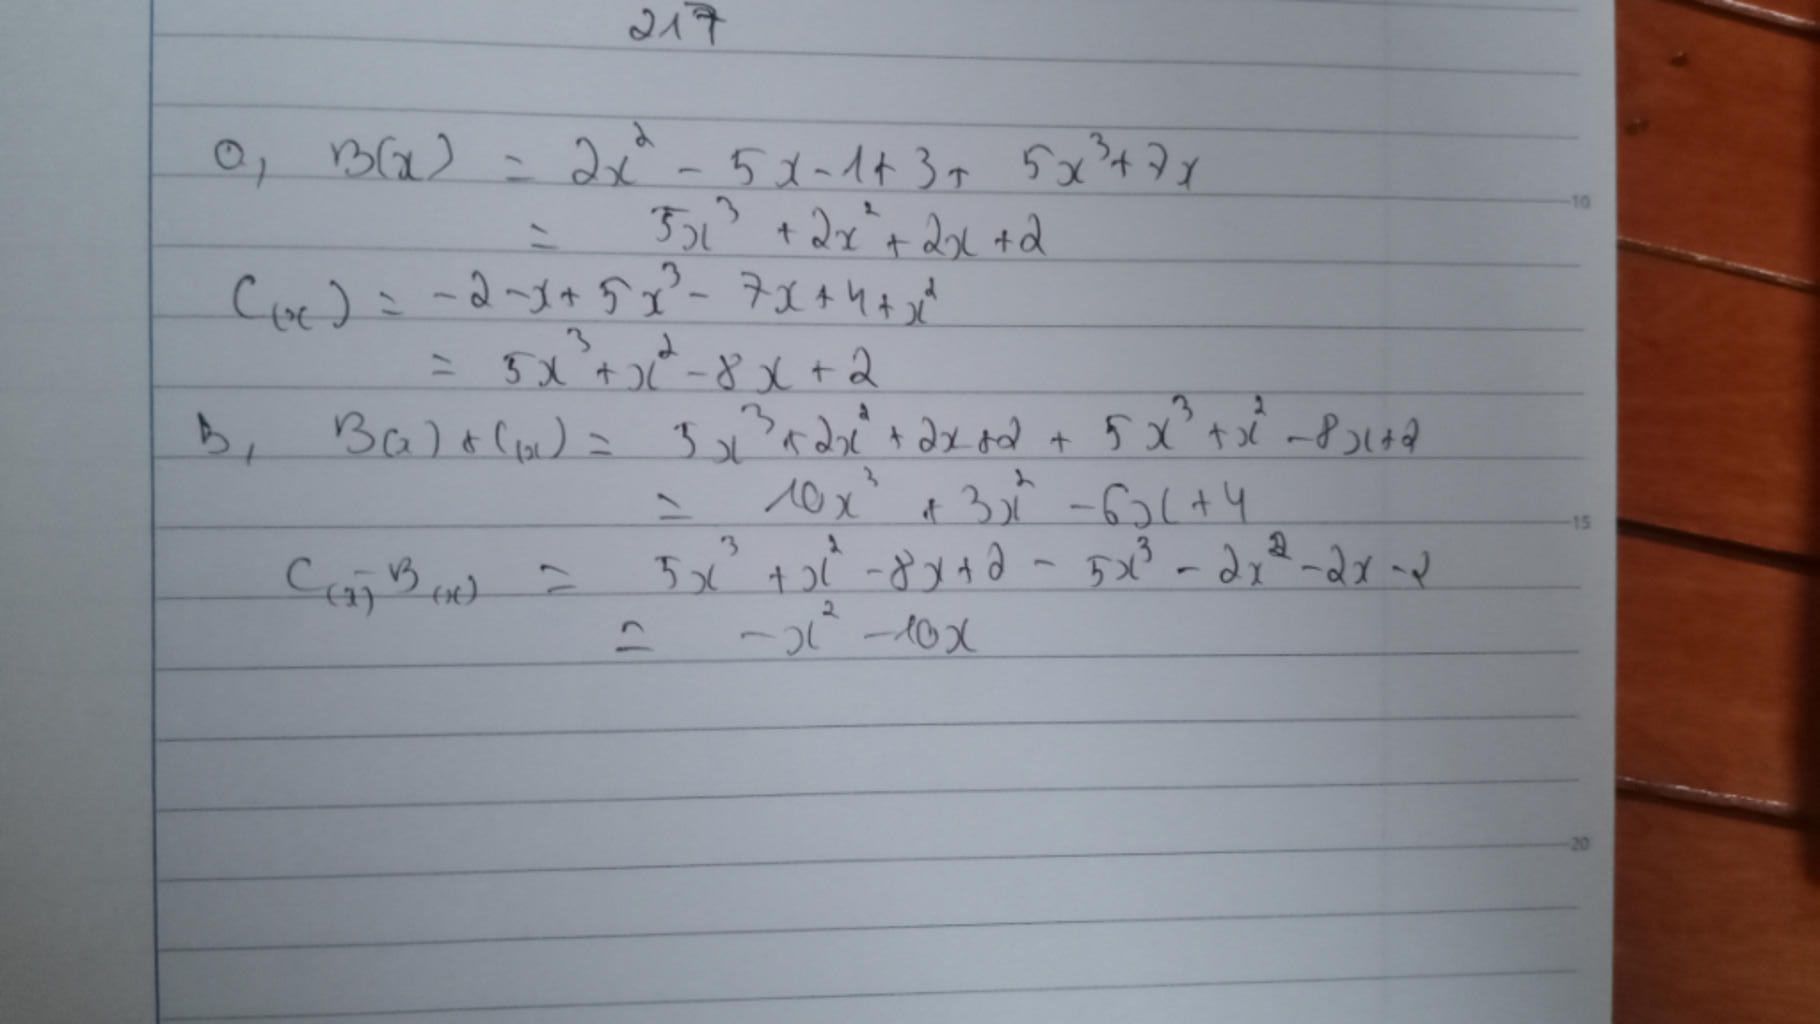 217
a, B(x) = 2x² - 5x - 1 + 3 + 5x³ + 7x
= 5x³ + 2x² + 2x + 2
C(x) = -2 - x + 5x³ - 7x + 4 + x²
= 5x³ + x² - 8x + 2
b, B(x) + C(x) = 5x³ + 2x² + 2x + 2 + 5x³ + x² - 8x + 2
= 10x³ + 3x² - 6x + 4
C(x) - B(x) = 5x³ + x² - 8x + 2 - 5x³ - 2x² - 2x - 2
= -x² - 10x
10
15
20